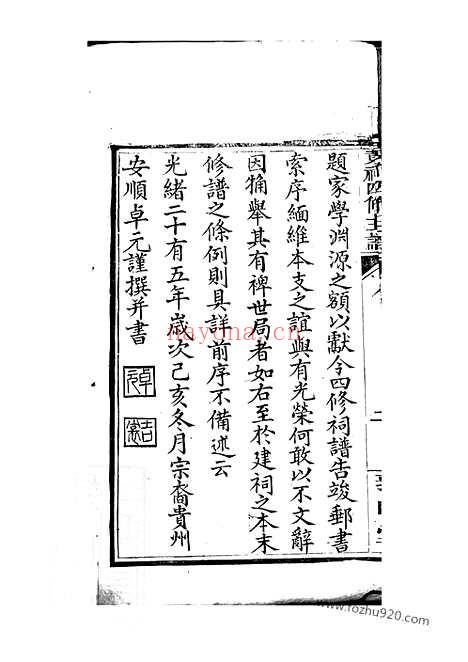 題家學淵源之額以獻今四修祠譜告竣郵書
索序緬維本支之誼與有光榮何敢以不文辭
因觕舉其有裨世局者如右至於建祠之本末
修譜之條例則具詳前序不備述云
光緒二十有五年歲次己亥冬月宗裔貴州
安順卓元謹撰并書
nayona.cn
www.fozhu920.com